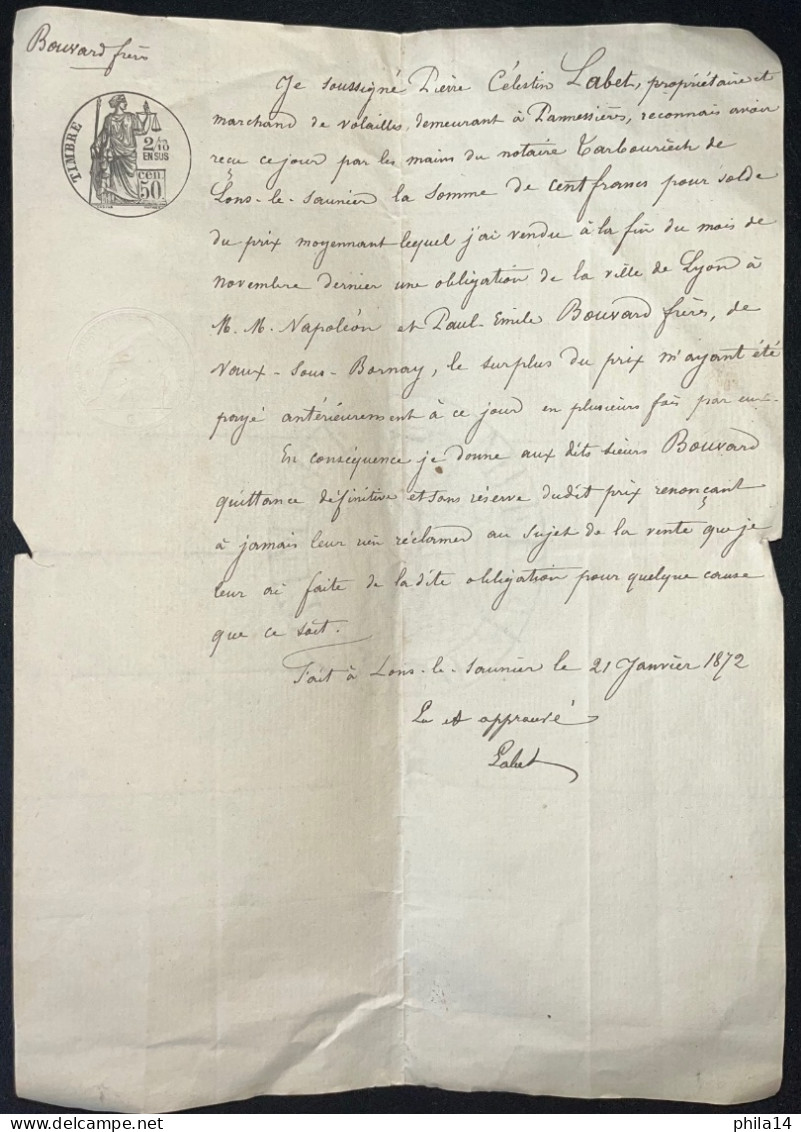 Bouvard frères
TIMBRE
2/10
EN SUS
50 cen.
Je soussigné Pierre Célestin Labet, propriétaire et
marchand de volailles, demeurant à Pannessières, reconnais avoir
reçu ce jour par les mains du notaire Tarbouriech de
Lons-le-Saunier la somme de cent francs pour solde
du prix moyennant lequel j'ai vendu à la fin du mois de
novembre dernier une obligation de la ville de Lyon à
M. M. Napoléon et Paul-Emile Bouvard frères, de
Vaux-Sous-Bornay, le surplus du prix m'ayant été
payé antérieurement à ce jour en plusieurs fois par eux.
En conséquence je donne aux dits sieurs Bouvard
quittance définitive et sans réserve dudit prix renonçant
à jamais leur rien réclamer au sujet de la vente que je
leur ai faite de ladite obligation pour quelque cause
que ce soit.
Fait à Lons-le-Saunier le 21 Janvier 1872
Lu et approuvé
Labet
phila14